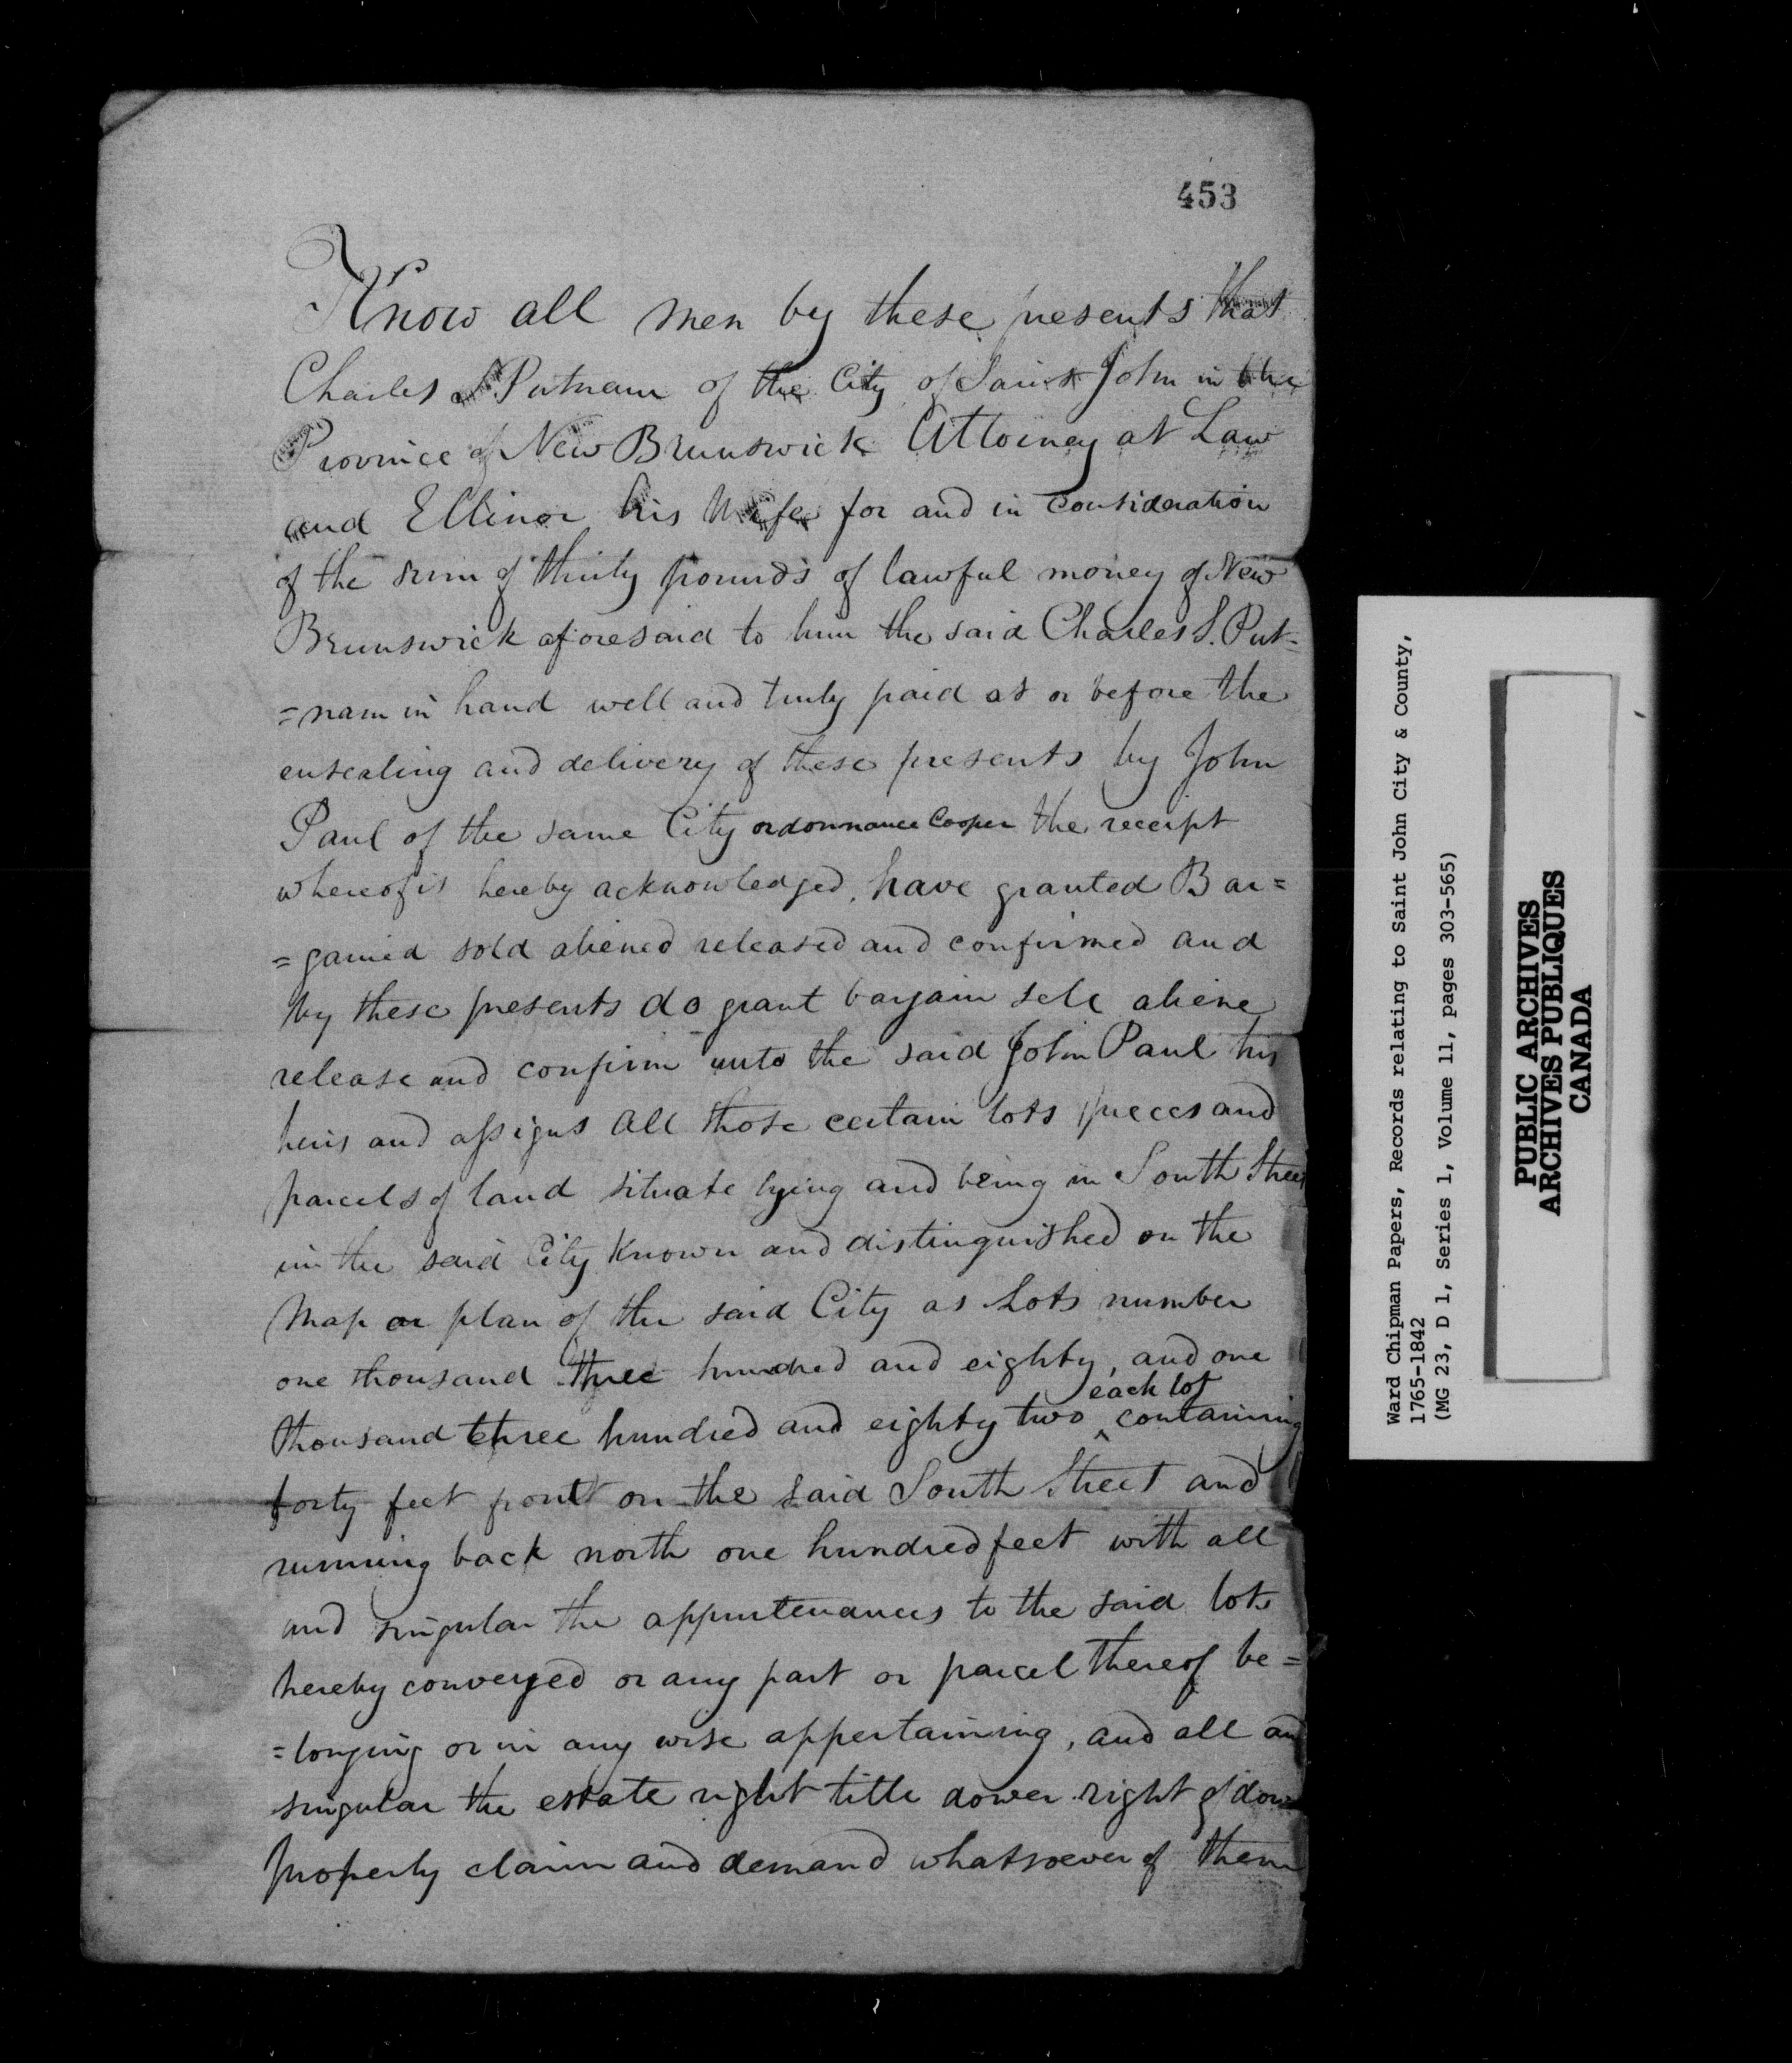 453
Know all men by these presents that
Charles S Putnam of the City of Saint John in the
Province of New Brunswick Attorney at Law
and Ellinor his Wife for and in consideration
of the sum of thirty pounds of lawful money of New
Brunswick aforesaid to him the said Charles S. Put=
=nam in hand well and truly paid at or before the
ensealing and delivery of these presents by John
Paul of the same City ordonnance Cooper the receipt
whereof is hereby acknowledged, have granted Bar=
=gained sold aliened released and confirmed and
by these presents do grant bargain sell aliene
release and confirm unto the said John Paul his
heirs and assigns all those certain lots pieces and
parcels of land situate lying and being in South Street
in the said City known and distinguished on the
Map or plan of the said City as Lots number
one thousand three hundred and eighty, and one
thousand three hundred and eighty two ^ each lot containing
forty feet front on the said South Street and
running back north one hundred feet with all
and singular the appurtenances to the said lots
hereby conveyed or any part or parcel thereof be=
=longing or in any wise appertaining, and all and
singular the estate right title dower right of dower
property claim and demand whatsoever of them
Ward Chipman Papers, Records relating to Saint John City & County,
1765-1842
(MG 23, D 1, Series 1, Volume 11, pages 303-565)
PUBLIC ARCHIVES
ARCHIVES PUBLIQUES
CANADA